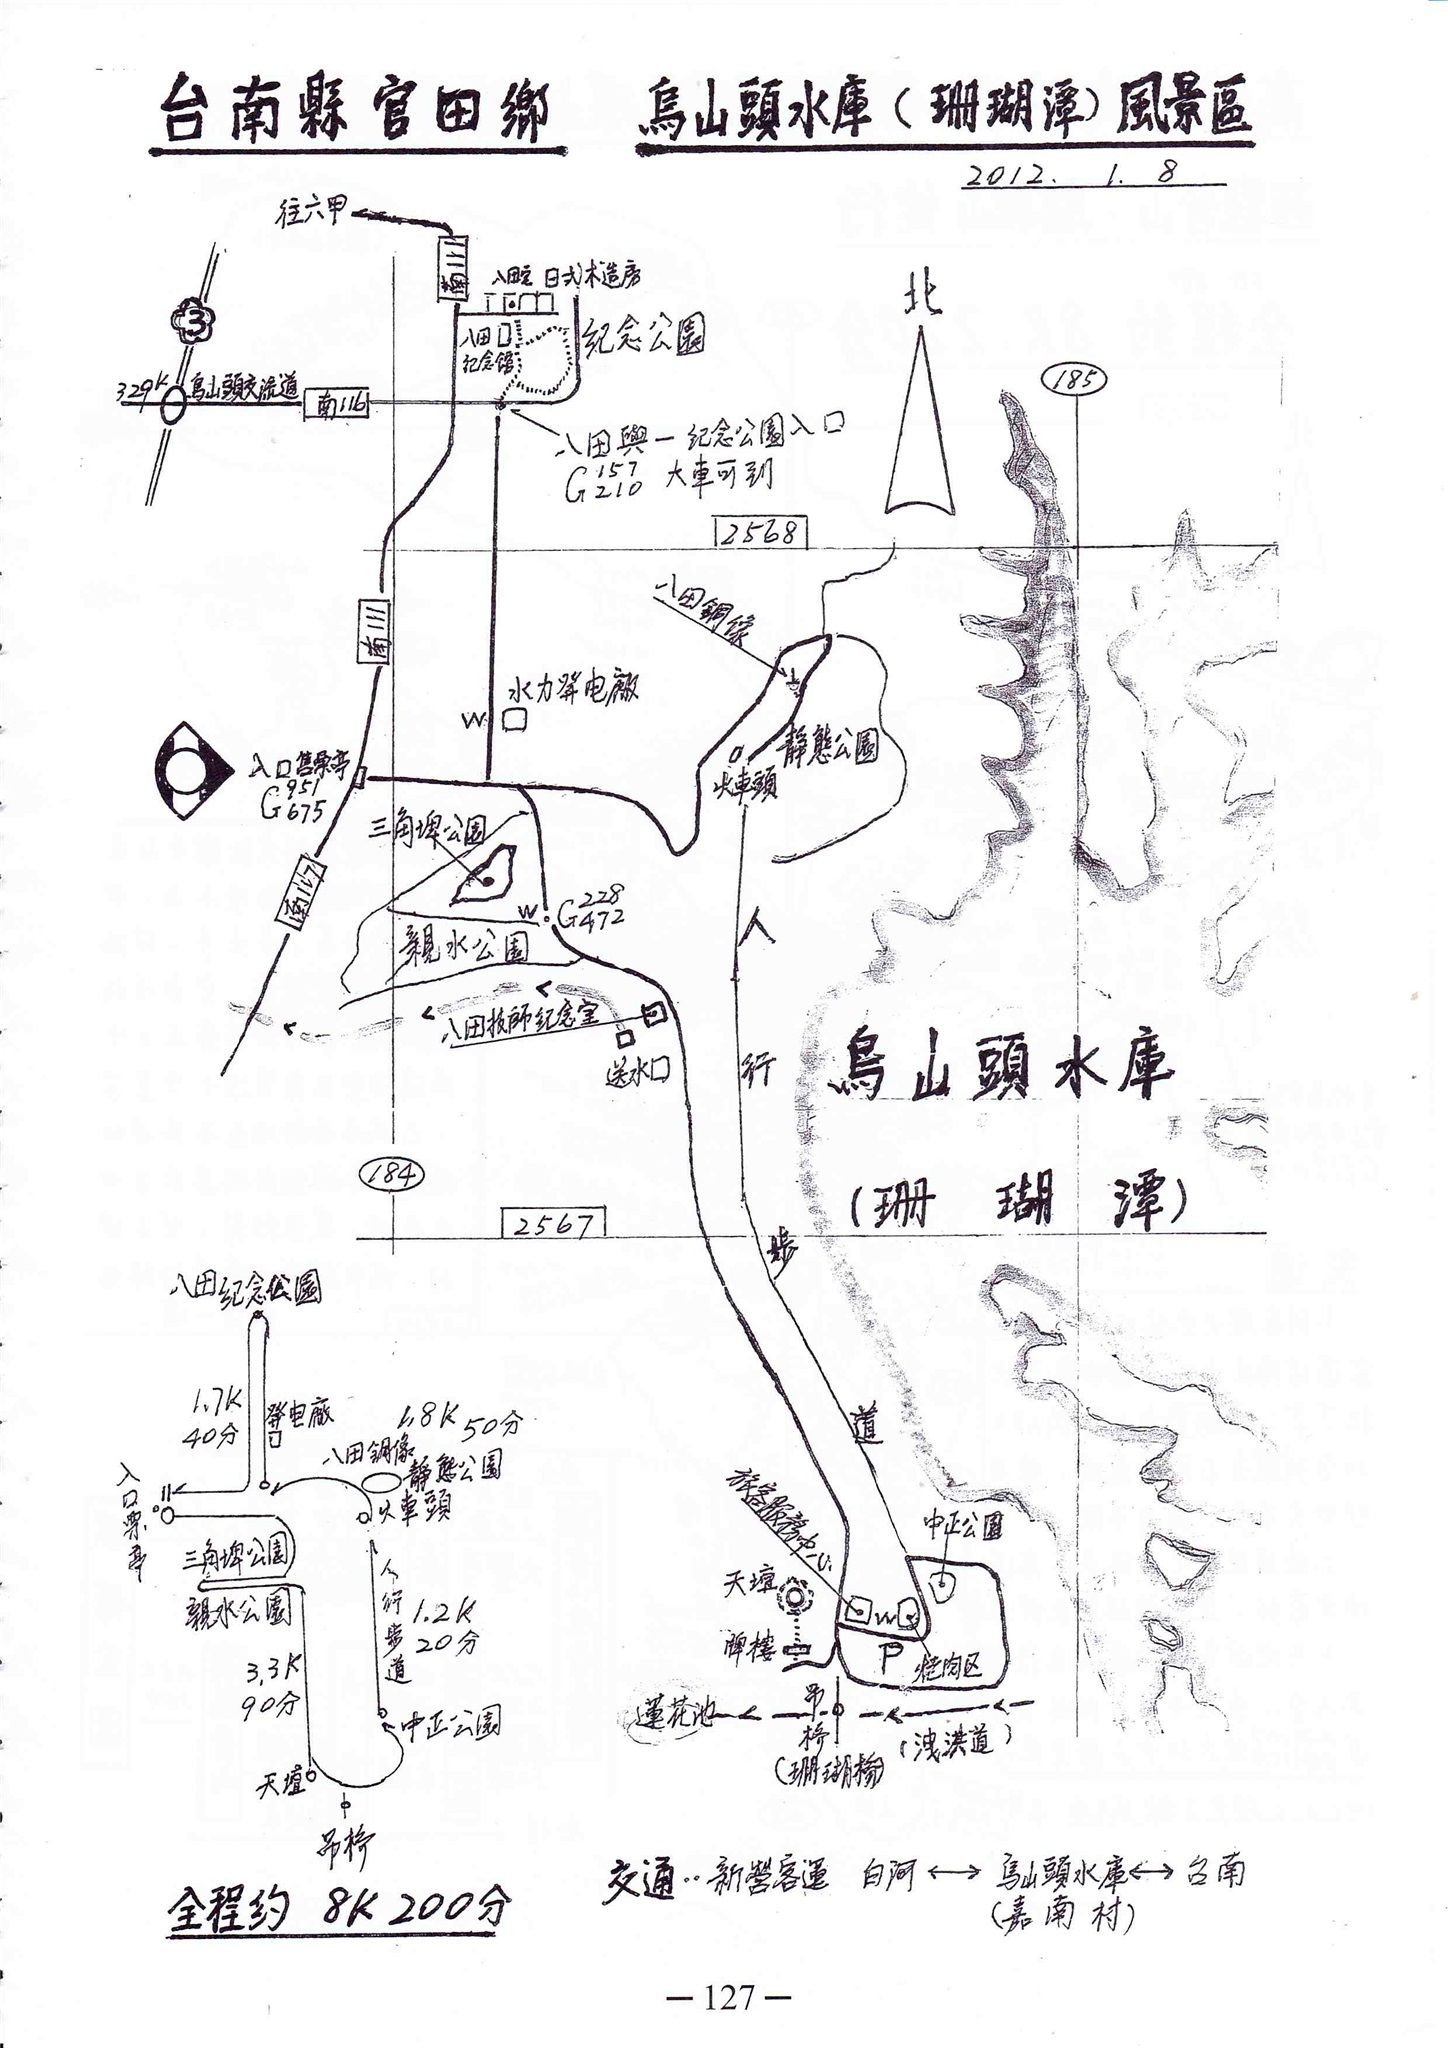 台南縣官田鄉 烏山頭水庫(珊瑚潭)風景區
2012. 1. 8
往六甲
南111
八田宅 日式木造房
八田紀念館
紀念公園
3
329K 烏山頭交流道
南116
八田與一紀念公園入口
G 157 210 大車可到
北
185
2568
八田銅像
南111
水力發电廠
W
入口售票亭
G 951 675
靜態公園
火車頭
三角埤公園
南117
W
G 228 472
親水公園
八田技師紀念室
送水口
人行步道
烏山頭水庫
(珊瑚潭)
184
2567
八田紀念公園
1.7K
40分
發电廠
1.8K 50分
八田銅像
靜態公園
火車頭
入口票亭
三角埤公園
親水公園
人行步道
1.2K
20分
3.3K
90分
中正公園
天壇
吊橋
全程約 8K 200分
旅客服務中心
中正公園
天壇
牌樓
W
P
烤肉区
蓮花池
吊橋
(珊瑚橋)
(洩洪道)
交通:新營客運 白河↔烏山頭水庫↔台南
(嘉南村)
— 127 —